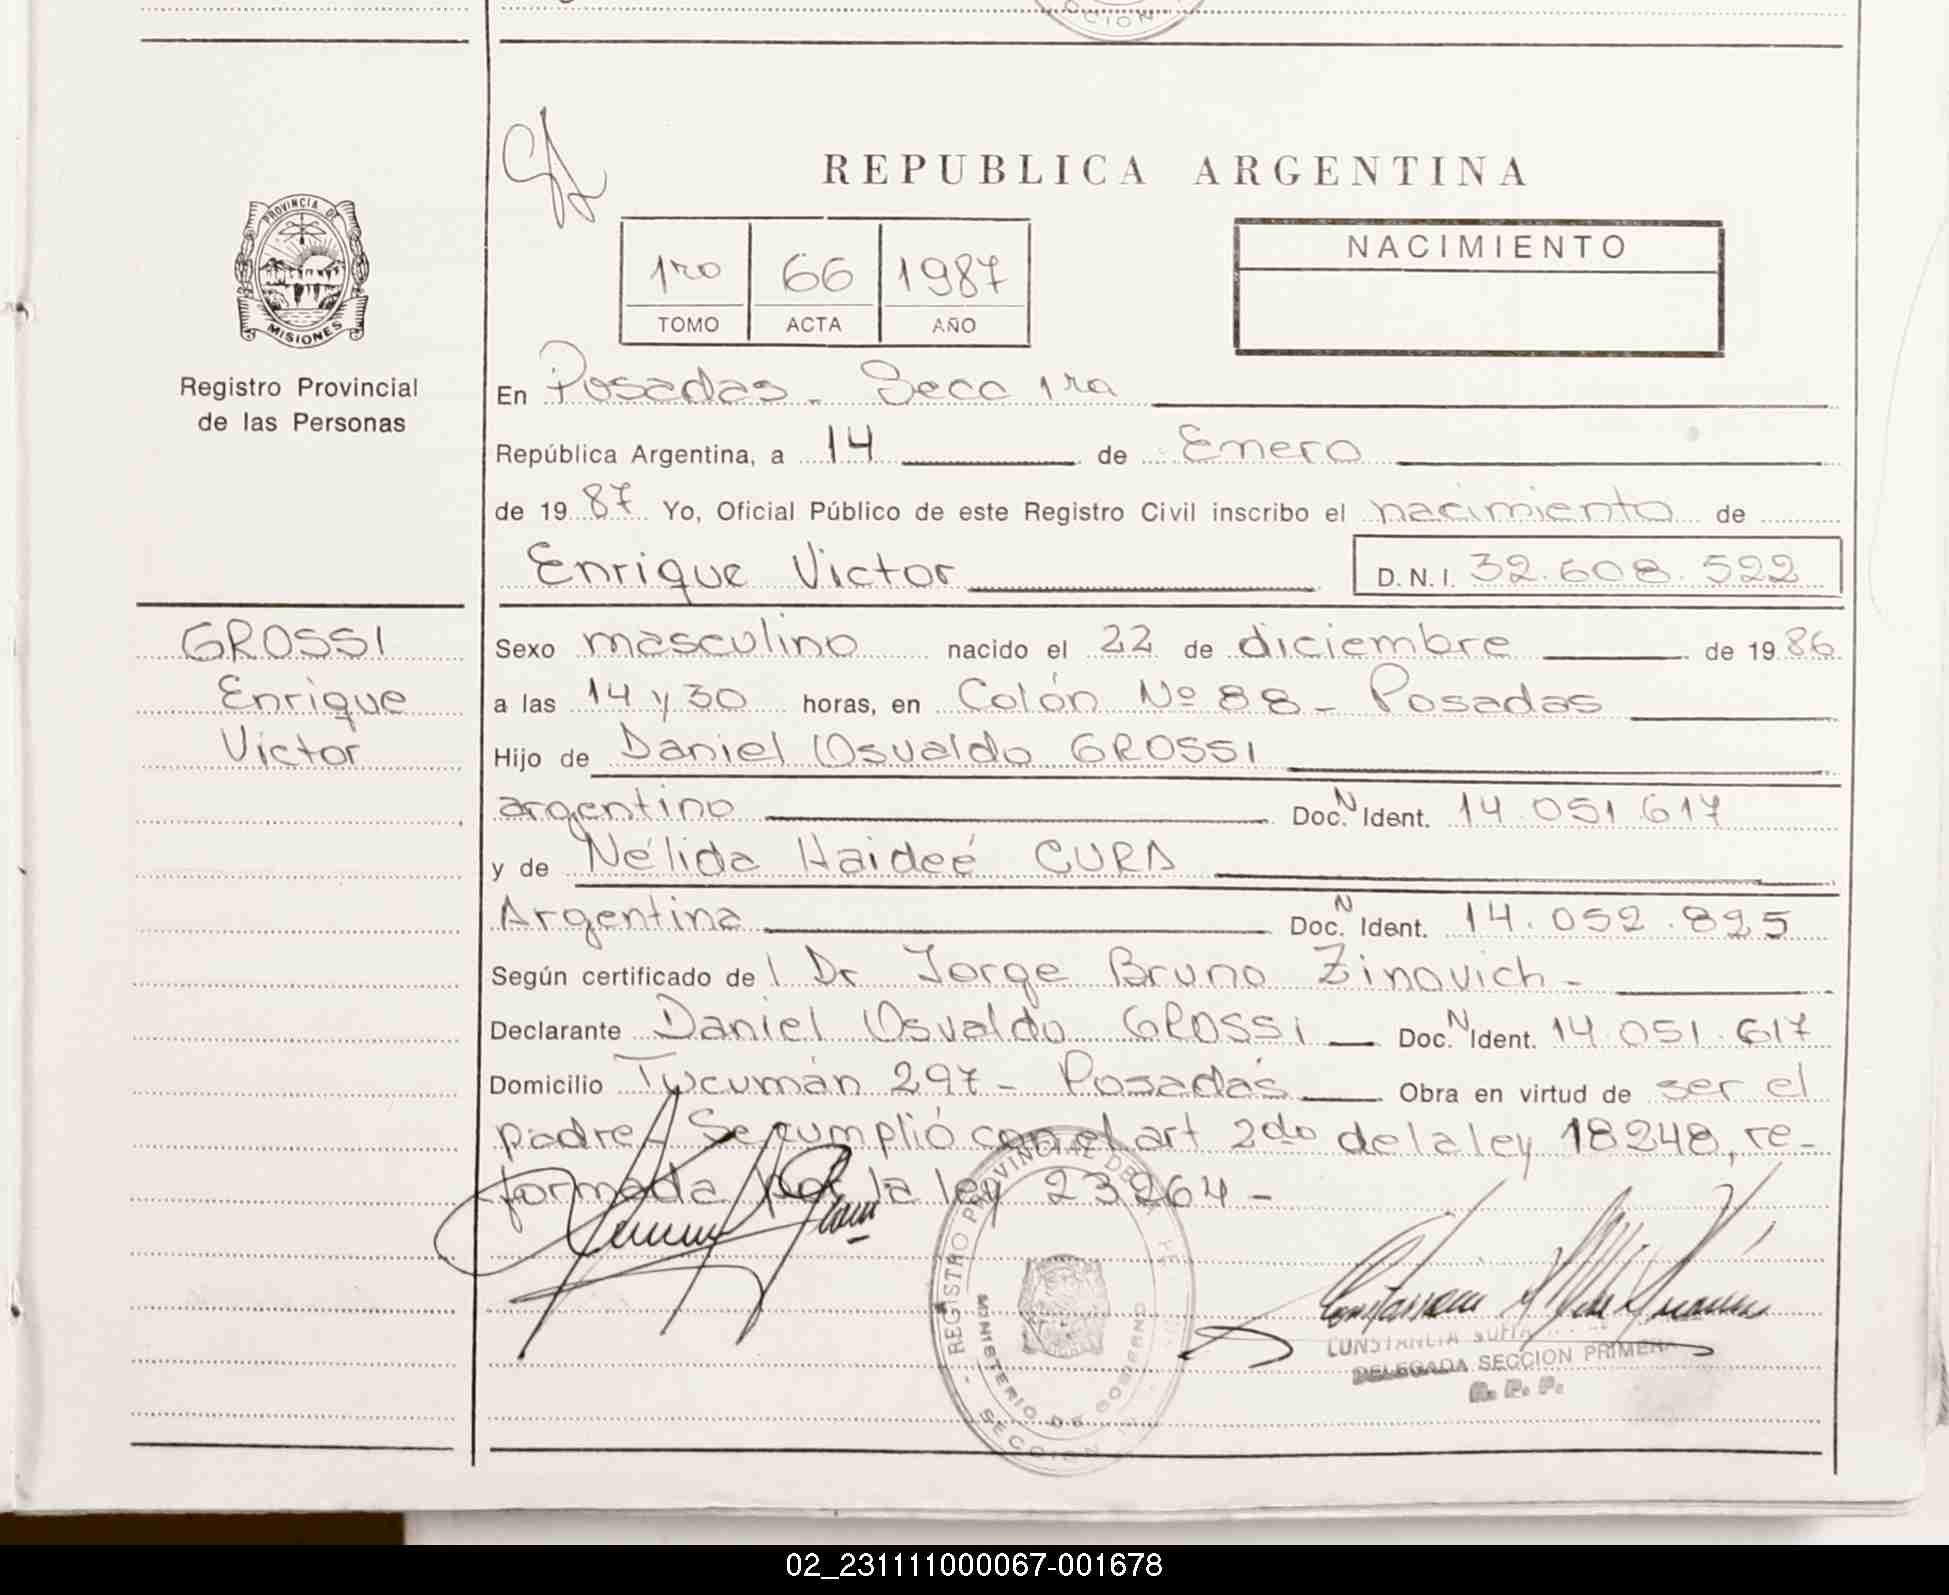 OCION
REPUBLICA ARGENTINA
PROVINCIA DE
MISIONES
Registro Provincial
de las Personas
1ro 66 1987
TOMO ACTA AÑO
NACIMIENTO
En Posadas - Secc 1ra
República Argentina, a 14 de Enero
de 1987 Yo, Oficial Público de este Registro Civil inscribo el nacimiento de
Enrique Victor D.N.I. 32.608.522
GROSSI
Enrique
Victor
Sexo masculino nacido el 22 de diciembre de 1986
a las 14 y 30 horas, en Colón Nº 88 - Posadas
Hijo de Daniel Osvaldo GROSSI
argentino Doc. N Ident. 14.051.617
y de Nélida Haideé CURA
Argentina Doc. N Ident. 14.052.825
Según certificado del Dr Jorge Bruno Zinovich -
Declarante Daniel Osvaldo GROSSI Doc. N Ident. 14.051.617
Domicilio Tucumán 297 - Posadas Obra en virtud de ser el
padre - Se cumplió con el art 2do de la ley 18248, re-
formada por la ley 23264 -
REGISTRO PROVINCIAL DE
MINISTERIO DE GOBIERNO
SECCION
CONSTANCIA
DELEGADA SECCION PRIMERA
R. P. P.
02_231111000067-001678